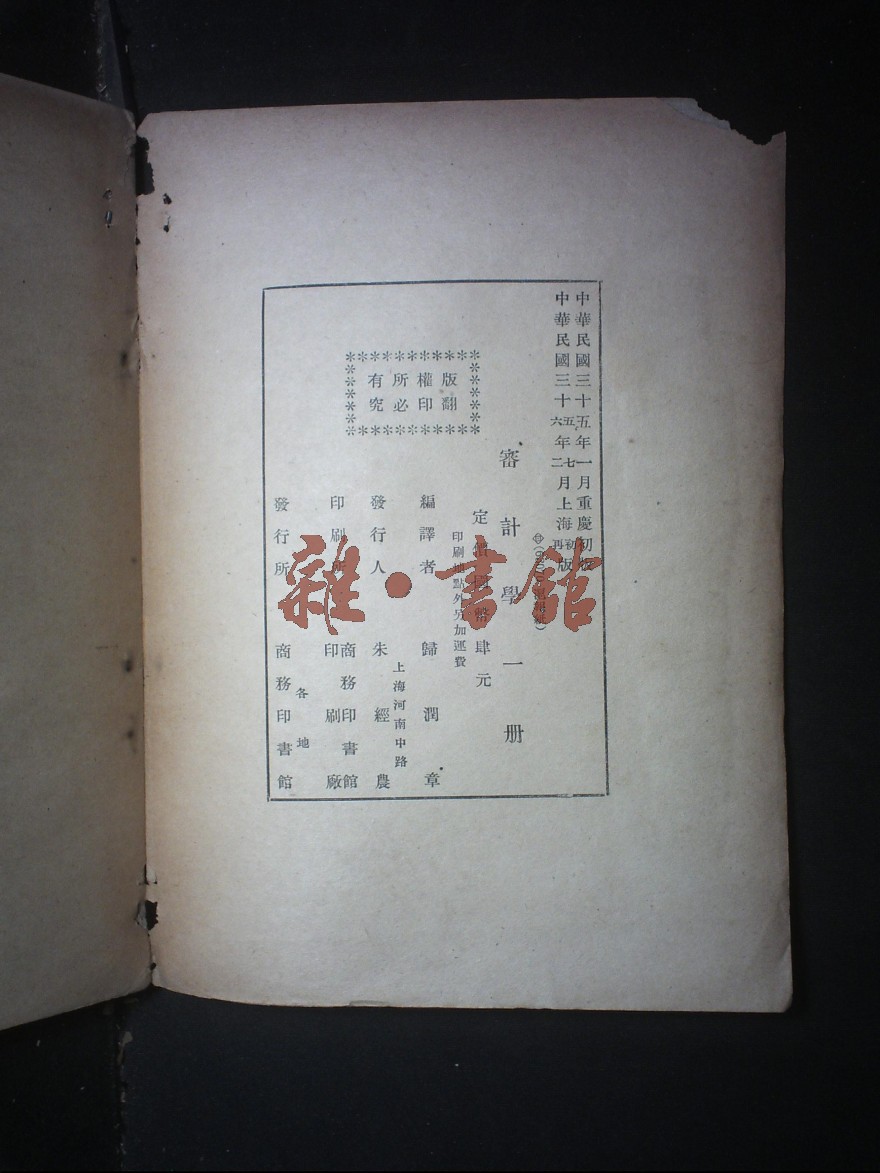 中華民國三十五年一月重慶初版
中華民國三十五六年七二月上海初再版
審計學一册
定價國幣肆元
印刷地點外另加運費
版權所有
翻印必究
編譯者 歸潤章
上海河南中路
發行人 朱經農
印刷所 商務印書館印刷廠
各地
發行所 商務印書館
雜·書館